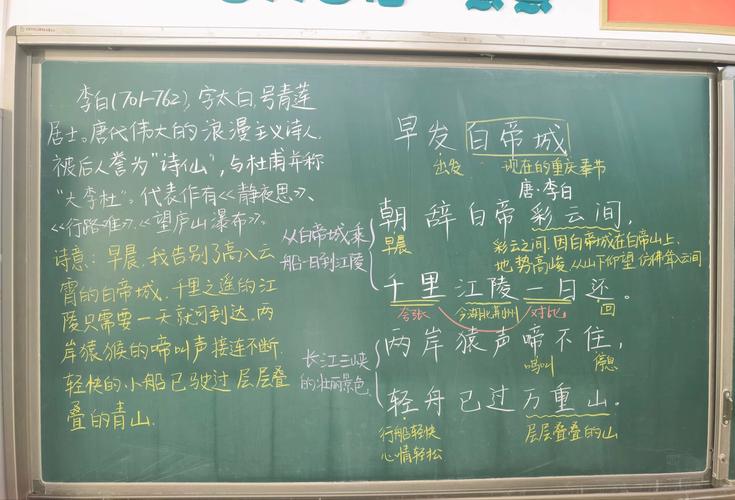 李白(701-762),字太白,号青莲
居士。唐代伟大的浪漫主义诗人,
被后人誉为“诗仙”,与杜甫并称
“大李杜”。代表作有《静夜思》、
《行路难》、《望庐山瀑布》。
诗意:早晨,我告别了高入云
霄的白帝城,千里之遥的江
陵只需要一天就可到达,两
岸猿猴的啼叫声接连不断,
轻快的小船已驶过层层叠
叠的青山.
早发白帝城
出发
现在的重庆奉节
唐·李白
从白帝城乘
船一日到江陵
朝辞白帝彩云间,
早晨
彩云之间,因白帝城在白帝山上,
地势高峻,从山下仰望仿佛耸入云间
千里江陵一日还。
夸张
今湖北荆州
对比
回
长江三峡
的壮丽景色
两岸猿声啼不住,
鸣叫
停息
轻舟已过万重山.
行船轻快
心情轻松
层层叠叠的山